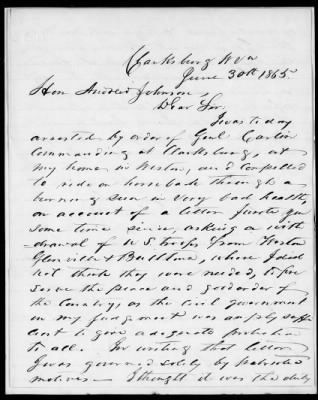 Clarksburg W Va
June 30th 1865
Hon Andrew Johnson,
Dear Sir,
I was to day
arrested by order of Genl Carlin
commanding at Clarksburg, at
my home in Weston, and compelled
to ride on horse back through a
burning sun in very bad health,
on account of a letter I wrote you
some time since, asking a with
drawal of U S troops from Weston
Glenville & Bulltown, where I did
not think they were needed, to pre
serve the peace and good order of
the Country, as the civil government
in my judgment was amply suffi
cient to give adequate protection
to all. In writing that letter
I was governed solely by patriotic
motives — I thought it was the duty